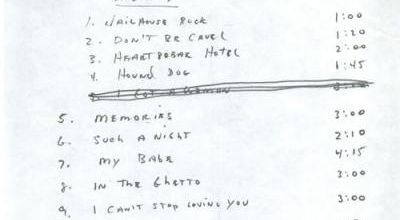 1. JAILHOUSE ROCK 1:00
2. DON'T BE CRUEL 1:20
3. HEARTBREAK HOTEL 2:00
4. HOUND DOG 1:45
I GOT A WOMAN
5. MEMORIES 3:00
6. SUCH A NIGHT 2:10
7. MY BABE 4:15
8. IN THE GHETTO 3:00
9. I CAN'T STOP LOVING YOU 3:00